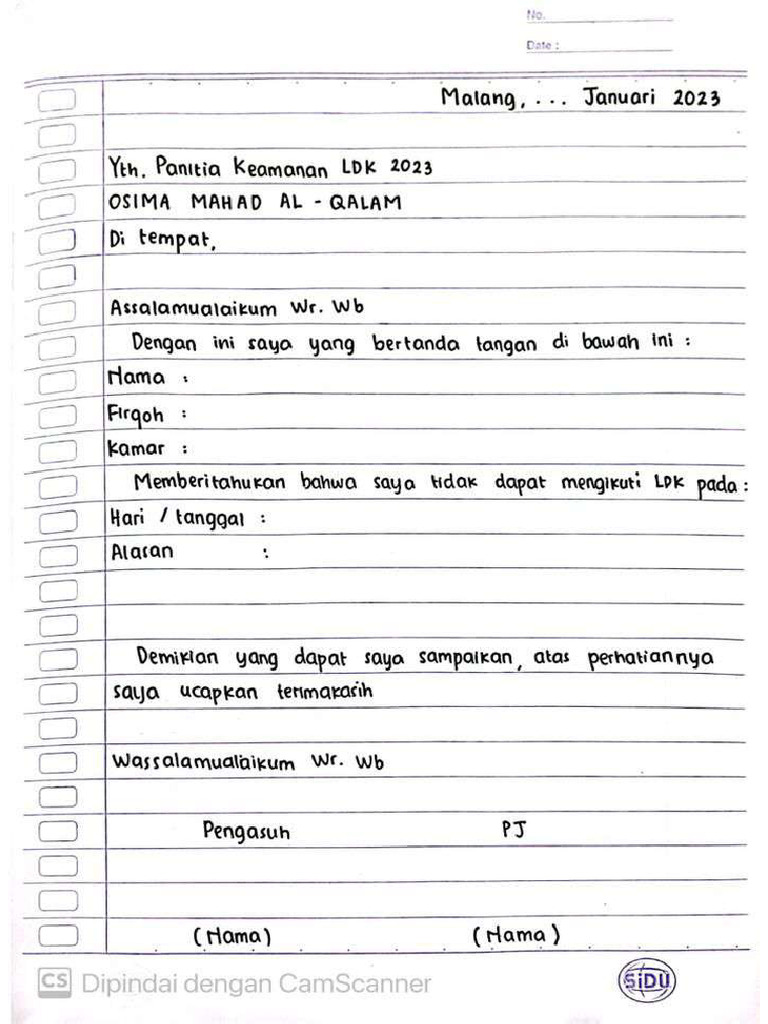 No.
Date :
Malang, ... Januari 2023
Yth. Panitia Keamanan LDK 2023
OSIMA MAHAD AL - QALAM
Di tempat,
Assalamualaikum Wr. Wb
Dengan ini saya yang bertanda tangan di bawah ini :
Nama :
Firqoh :
Kamar :
Memberitahukan bahwa saya tidak dapat mengikuti LDK pada :
Hari / tanggal :
Alasan :
Demikian yang dapat saya sampaikan, atas perhatiannya
saya ucapkan terimakasih
Wassalamualaikum Wr. Wb
Pengasuh PJ
(Nama) (Nama)
CS Dipindai dengan CamScanner
SiDU